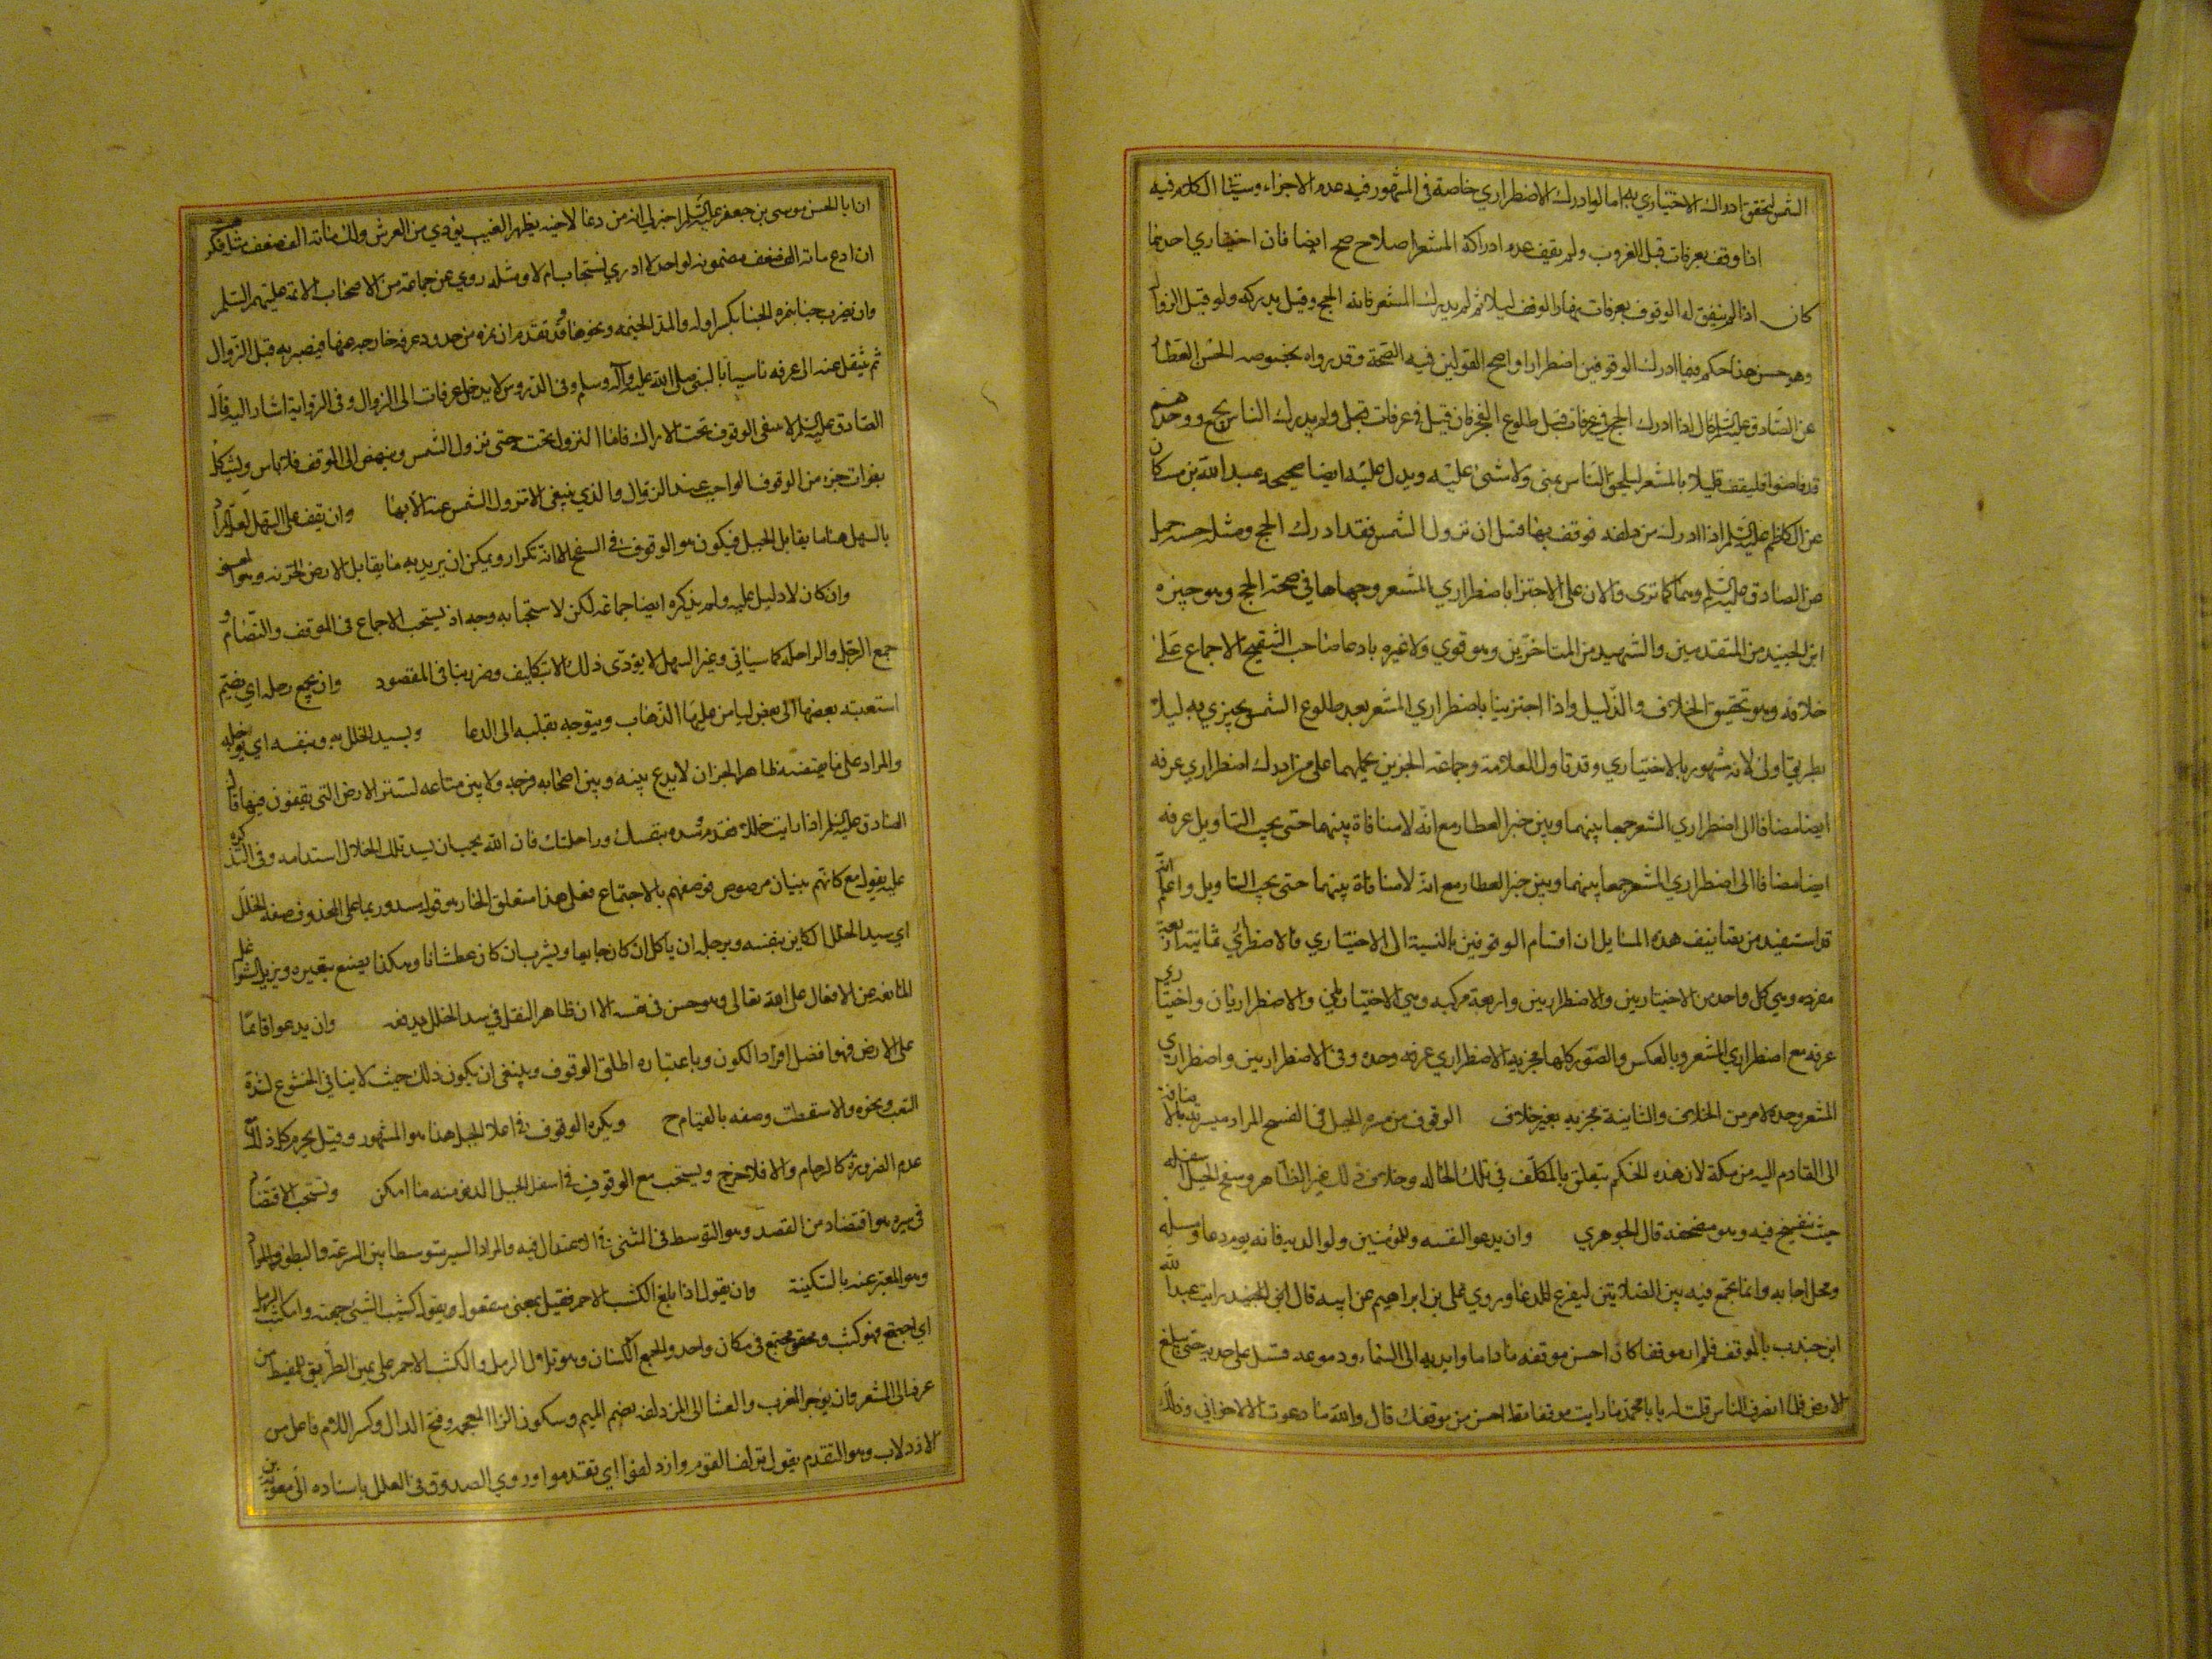 الشمس ليتحقق ادراك الاختياري به اما لو ادرك الاضطراري خاصة في المشهور فيه عدم الاجزاء وسيئتا الكلام فيه
اذا وقف بعرفات قبل الغروب ولم يقيف عدم ادراكه المشعر اصلا صح ايضا فان اختياري احدهما
كان اذا لم يتفق له الوقوف بعرفات نهارا فوقف ليلا ثم لم يدرك المشعر فاته الحج وقيل يدركه ولو قبل الزوال
وهو حسن هذا حكم فيما ادرك الوقوفين اضطرارا واصح القولين فيه الصحة وقد رواه بخصوصه الحسن العطار
عن الصادق عليه السلم قال اذا ادرك الحج في عرفات قبل طلوع الفجر فان قبل في عرفات ولم يدرك الناس بجمع ووجدهم
قد فاضوا فليقف قليلا بالمشعر ليلحق الناس بمنى ولا شئ عليه ويدل عليه ايضا صحيحه عبد الله بن مسكان
عن الكاظم عليه السلم اذا ادرك من دلفه فوقف بها قبل ان تزول الشمس فقد ادرك الحج ومثله حسنه جميل
عن الصادق عليه السلم وهما كما ترى دالان على الاجتزا باضطراري المشعر وجهاها في صحة الحج وهو خيره
ابن الجنيد من المتقدمين والشهيد من المتاخرين وهو قوي ولا غيره بادعا صاحب التنقيح الاجماع على
خلافه وهو تحقيق الخلاف والدليل واذا اجتزينا باضطراري المشعر بعد طلوع الشمس يجزي به ليلا
بطريق اولى لانه مشهور بالاختياري وقد تاول العلامة وجماعة الخبرين بحملهما على من ادرك اضطراري عرفه
ايضا مضافا الى اضطراري المشعر جمعا بينهما وبين خبر العطار مع انه لا منافاة بينهما حتى يجب التاويل عرفه
ايضا مضافا الى اضطراري المشعر جمعا بينهما وبين خبر العطار مع انه لا منافاة بينهما حتى يجب التاويل واعلم انه
قد استفيد من هذه المسايل ان اقسام الوقوفين بالنسبة الى الاختياري والاضطراري ثمانية اربعة
مفرده وهي كل واحد من الاختياريين والاضطراريين واربعة مركبه وهي الاختياريان والاضطراريان واختياري
عرفه مع اضطراري المشعر وبالعكس والصور كلها مجزيه الا ضطراري عرفه وحده وفي الاضطراريين واضطراري
المشعر وحده لامر من الخلاف والثانية مجزيه بغير خلاف الوقوف من ميسره الجبل في السفح المراد ميسرته بالاضافة
الى القادم اليه من مكة لان هذه الحكم تتعلق بالمكلف في تلك الحالة وخلاف ذلك غير الظاهر وسفح الجبل اسفله
حيث ينفسح فيه وهو مضجعه قال الجوهري وان يدعو لنفسه وللمؤمنين ولوالديه فانه يوم دعا ومسله
ومحل اجابه وانما يجتمع فيه بين الصلاتين ليفرغ للدعا وروي علي بن ابراهيم عن ابيه قال رايت عبد الله
ابن جندب بالموقف فلم ار موقفا كان احسن موقفه مادا يديه الى السماء ودموعه تسيل على خديه حتى يبلغ
الارض فلما انصرف الناس قلت له يا با محمد ما رايت موقفا قط احسن من موقفك قال والله ما دعوت الا لاخواني وذلك
ان ابا الحسن موسى بن جعفر عليه السلم اخبرني انه من دعا لاخيه بظهر الغيب نودي من العرش ولك مائة الف ضعف مثله فكرهت
ان ادع مائة الف ضعف مضمونه لواحدة لا ادري تستجاب ام لا ومثله روي عن جماعة من الاصحاب الائمة عليهم السلم
وان يضرب خباه بنمره الخبا بكسر اوله والمد الخيمه ونحوها وقد تقدم ان نمره من حدود عرفه خارجه عنها فيضربه قبل الزوال
ثم ينتقل عنه الى عرفه تاسيا بالنبي صلى الله عليه وآله وسلم وفي الدروس لا يدخل عرفات الى الزوال وفي الرواية اشار اليه قال
الصادق عليه السلم لا ينبغي الوقوف تحت الاراك فاما النزول تحته حتى تزول الشمس وينهض الى الموقف فلا باس ويشكل
بفوات جزء من الوقوف الواجب عند الزوال والذي ينبغي الا تزول الشمس عنه الا بها وان يقف على السهل لعل المراد
بالسهل هنا ما يقابل الجبل فيكون هو الوقوف في السفح الا انه تكرار ويمكن ان يريد به ما يقابل الارض الحزنه وهو
وان كان لا دليل عليه ولم يذكره ايضا جماعة لكن لاستحبابه وجه اذ يستحب الاجماع في الموقف والتضام و
جمع الرحل والراحله كما سياتي وغير السهل لا يودي ذلك الا بتكليف وضربنا في المقصود وان يجمع رحله اي يضم
امتعته بعضها الى بعض ليامن عليها الذهاب ويتوجه بقلبه الى الدعا ويسد الخلل به وبنفسه اي
والمراد على ما يقتضيه ظاهر الخبر ان لا يدع بينه وبين اصحابه فرجه ولا بين متاعه لتستر الارض التي يقفون فيها قال
الصادق عليه السلم اذا رايت خللا فتقدم فسده بنفسك وراحلتك فان الله يحب ان يسد تلك الخلال
عليه بقوله مع كانهم بنيان مرصوص فوصفهم بالاجتماع فعلى هذا متعلق الجار هو قوله يسد وربما على المحذوف صفه للخلل
اي يسد الخلل الكاين بنفسه وبرحله ان ياكل ان كان جايعا ويشرب ان كان عطشانا وهكذا يصنع ببعيره ويزيل الشواغل
المانعه عن الاقبال على الله تعالى وهو حسن في نفسه الا ان ظاهر النقل في سد الخلل يدفعه وان يدعوا قائما
على الارض فهو افضل افراد الكون وباعتباره اطلق الوقوف وينبغي ان يكون ذلك حيث لا ينافي الخشوع لشدة
التعب ونحوه والا سقطت وصفه بالقيام ح ويكره الوقوف في اعلا الجبل هذا هو المشهور وقيل يحرم كما ذلك مع
عدم الضرورة كالزحام والا فلا حرج ويستحب مع الوقوف في اسفل الجبل الدنو منه ما امكن ويستحب الاقتصاد
في سيره هو اقتصاد من القصد وهو التوسط في الشئ والاعتدال فيه والمراد السير متوسطا بين السرعة والبطؤ والمراد
وهو المعبر عنه بالسكينة وان يقول اذا بلغ الكثيب الاحمر فعيل بمعنى مفعول ويقول كثبت الشئ جمعته وانكثب الرمل
اي اجتمع فهو كثيب ومجتمع في مكان واحد والجمع الكثبان وهو تلال الرمل والكثيب الاحمر على يمين الطريق للمفيض من
عرفه الى المشعر وان يؤخر المغرب والعشا الى المزدلفه بضم الميم وسكون الزا المعجمه وفتح الدال وكسر اللام فاعل من
الازدلاف وهو التقدم يقول تزلف القوم وازدلفوا اي تقدموا وروي الصدوق في العلل باسناده الى معوية بن